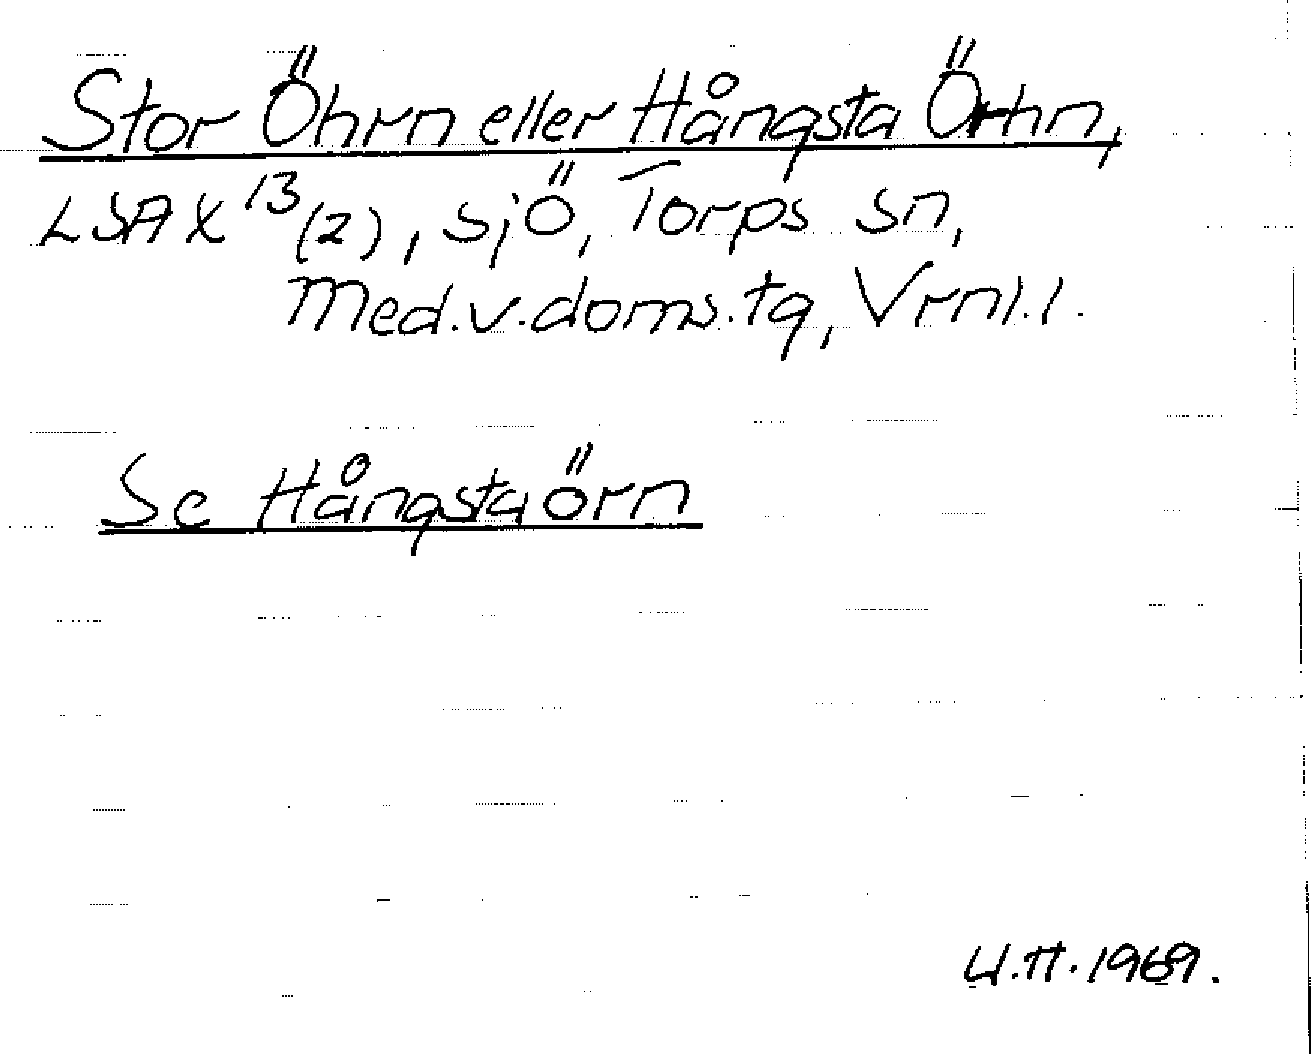 Stor Öhrn eller Hångsta Örhn,
LSA X 13 (2), sjö, Torps sn,
Med.v.doms.tg, Vrnl.l.
Se Hångstaörn
U.H.1969.